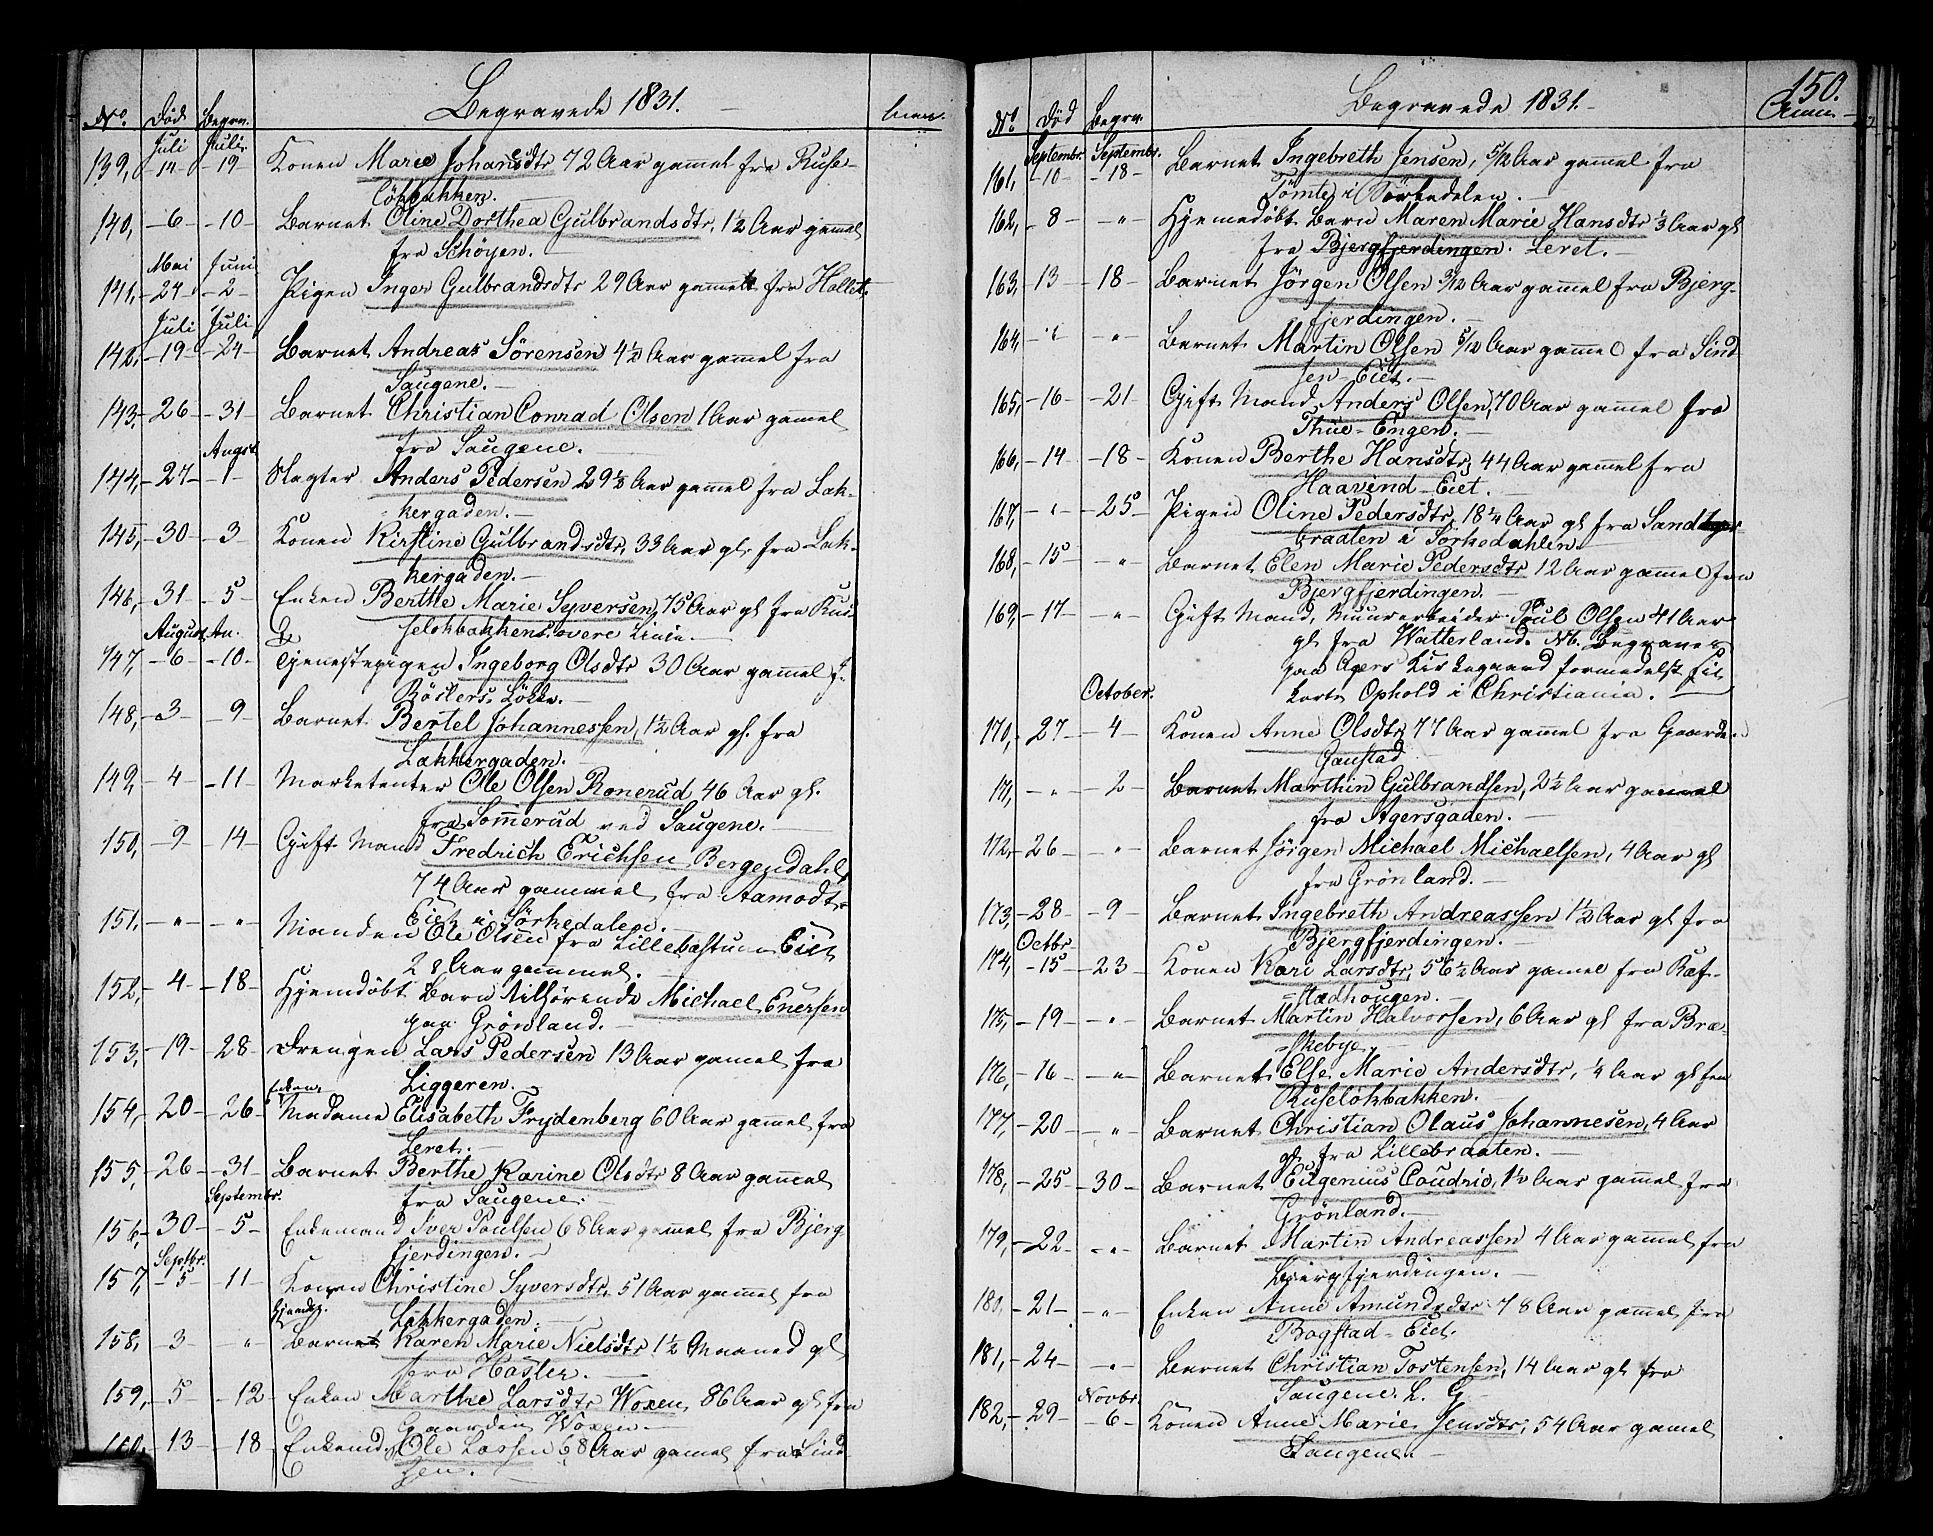 Begravede 1831.
No. Død Begrv.
Juli Juli
139, -14- -19- Konen Marie Johansdtr 72 Aar gammel fra Ruse-
løkbakken.
140, -6- -10- Barnet Oline Dorthea Gulbrandsdtr, 1½ Aar gamel
fra Schøyen.
Mai Juni
141, -27- -2- Pigen Inger Gulbrandsdtr 29 Aar gammel fra Hallet.
Juli Juli
142, -19- -24- Barnet Andreas Sørensen 4½ Aar gammel fra
Saugene.
143, -26- -31- Barnet Christian Conrad Olsen 1 Aar gammel
fra Saugene.
August
144, -27- -1- Slagter Anders Pedersen 29½ Aar gammel fra Lak-
kergaden.
145, -30- -3- Konen Kirstine Gulbrandsdtr, 33 Aar gl. fra Lak-
kergaden.
146, -31- -5- Enken Berthe Marie Syversen, 75 Aar gl fra Rus-
seløkbakkens øvere Linie.
August
147, -6- -10- Tjenestepigen Ingeborg Olsdtr 30 Aar gammel f.
Bøslers Løkke.
148, -3- -9- Barnet Bertel Johannessen, 1½ Aar gl. fra
Lakkergaden.
149, -4- -11- Marketenter Ole Olsen Ronerud 46 Aar gl.
fra Sommerud ved Saugene.
150, -9- -14- Gift Mand Fredrich Erichsen Bergendahl,
74 Aar gammel fra Aamodt-
Eiet i Sørkedalen.
151, -"- -"- Manden Ole Olsen fra Lillebastuen Eiet
28 Aar gammel.
152, -4- -18- Hjemdøbt Barn tilhørende Michael Enersen
paa Grønland.
153, -19- -28- Drengen Lars Pedersen 13 Aar gamel fra
Liggeren.
Enken
154, -20- -26- Madame Elisabeth Frydenberg 60 Aar gammel fra
Leret.
155, -26- -31- Barnet Berthe Karine Olsdtr 8 Aar gammel
fra Saugene.
Septembr.
156, -30- -5- Enkemand Iver Poulsen 68 Aar gammel fra Bjerg
fjerdingen.
Septbr.
157, -5- -11- Konen Christine Syversdtr, 51 Aar gammel fra
Lakkergaden.
158, -3- " Barnet Karen Marie Nielsdtr 1½ Maaned gl
fra Hasler.
159, -5- -12- Enken Marthe Larsdtr Woxen, 86 Aar gl fra
Gaarden Woxen.
160, -13- -18- Enkemd. Ole Lassen 68 Aar gammel fra Lind
sen.
150.
Begravede 1831.
No. Død Begrv. Anm.
Septembr. Septembr.
161, -10- -18- Barnet Ingebreth Jensen, 5/12 Aar gammel fra
Tømte i Sørkedalen.
162, -8- -"- Hjemedøbt Barn Maren Marie Hansdtr ⅓ Aar gl
fra Bjergfjerdingen. Leret.
163, -13- -18- Barnet Jørgen Olsen 3/12 Aar gammel fra Bjerg-
fjerdingen.
164, -"- -"- Barnet Martin Olsen 5/12 Aar gammel fra Lind
sen-Eiet.
165, -16- -21- Gift Mand Anders Olsen, 70 Aar gammel fra
Thue-Engen.
166, -14- -18- Konen Berthe Hansdtr, 44 Aar gammel fra
Haavind-Eiet.
167, -"- -25- Pigen Oline Pedersdtr, 18¼ Aar gl fra Sandunger
braaten i Sørkedahlen.
168, -15- -"- Barnet Elen Marie Pedersdtr 12 Aar gammel fra
Bjergfjerdingen.
169, -17- -"- Gift Mand, Muurarbeider Poul Olsen 41 Aar
gl fra Watterland. Nb. Begravet
paa Agers Kirkegaard formedelst sit
korte Ophold i Christiania.
October.
170, -27- -4- Konen Anne Olsdtr, 77 Aar gammel fra Gaarde
Gaustad
171, -"- -2- Barnet Marthin Gulbrandsen, 2½ Aar gammel
fra Agersgaden.
172, -26- -"- Barnet Jørgen Michael Michaelsen, 4 Aar gl
fra Grønland.
173, -28- -9- Barnet Ingebreth Andreassen 1½ Aar gl fra
Bjergfjerdingen.
Octbr.
174, -15- -23- Konen Kari Larsdtr, 56½ Aar gammel fra Ref-
stadhougen.
175, -19- -"- Barnet Martin Halvorsen, 6 Aar gl fra Bræ-
kebye.
176, -16- -"- Barnet Else Marie Andersdtr, ¼ Aar gl fra
Ruseløkbakken.
177, -20- -"- Barnet Christian Olaus Johannesen, 4 Aar
gl. fra Lillebraaten.
178, -25- -30- Barnet Eugenius Coudrio, 1½ Aar gammel fra
Grønland.
179, -22- -"- Barnet Martin Andreassen 4 Aar gammel fra
Bjergfjerdingen.
180, -21- -"- Enken Anne Amundsdtr 78 Aar gammel fra
Bogstad-Eiet.
181, -24- -"- Barnet Christian Tostensen, 14 Aar gl fra
Saugene. L. G
Novbr.
182, -29- -6- Konen Anne Marie Jensdtr, 54 Aar gammel
Saugene.